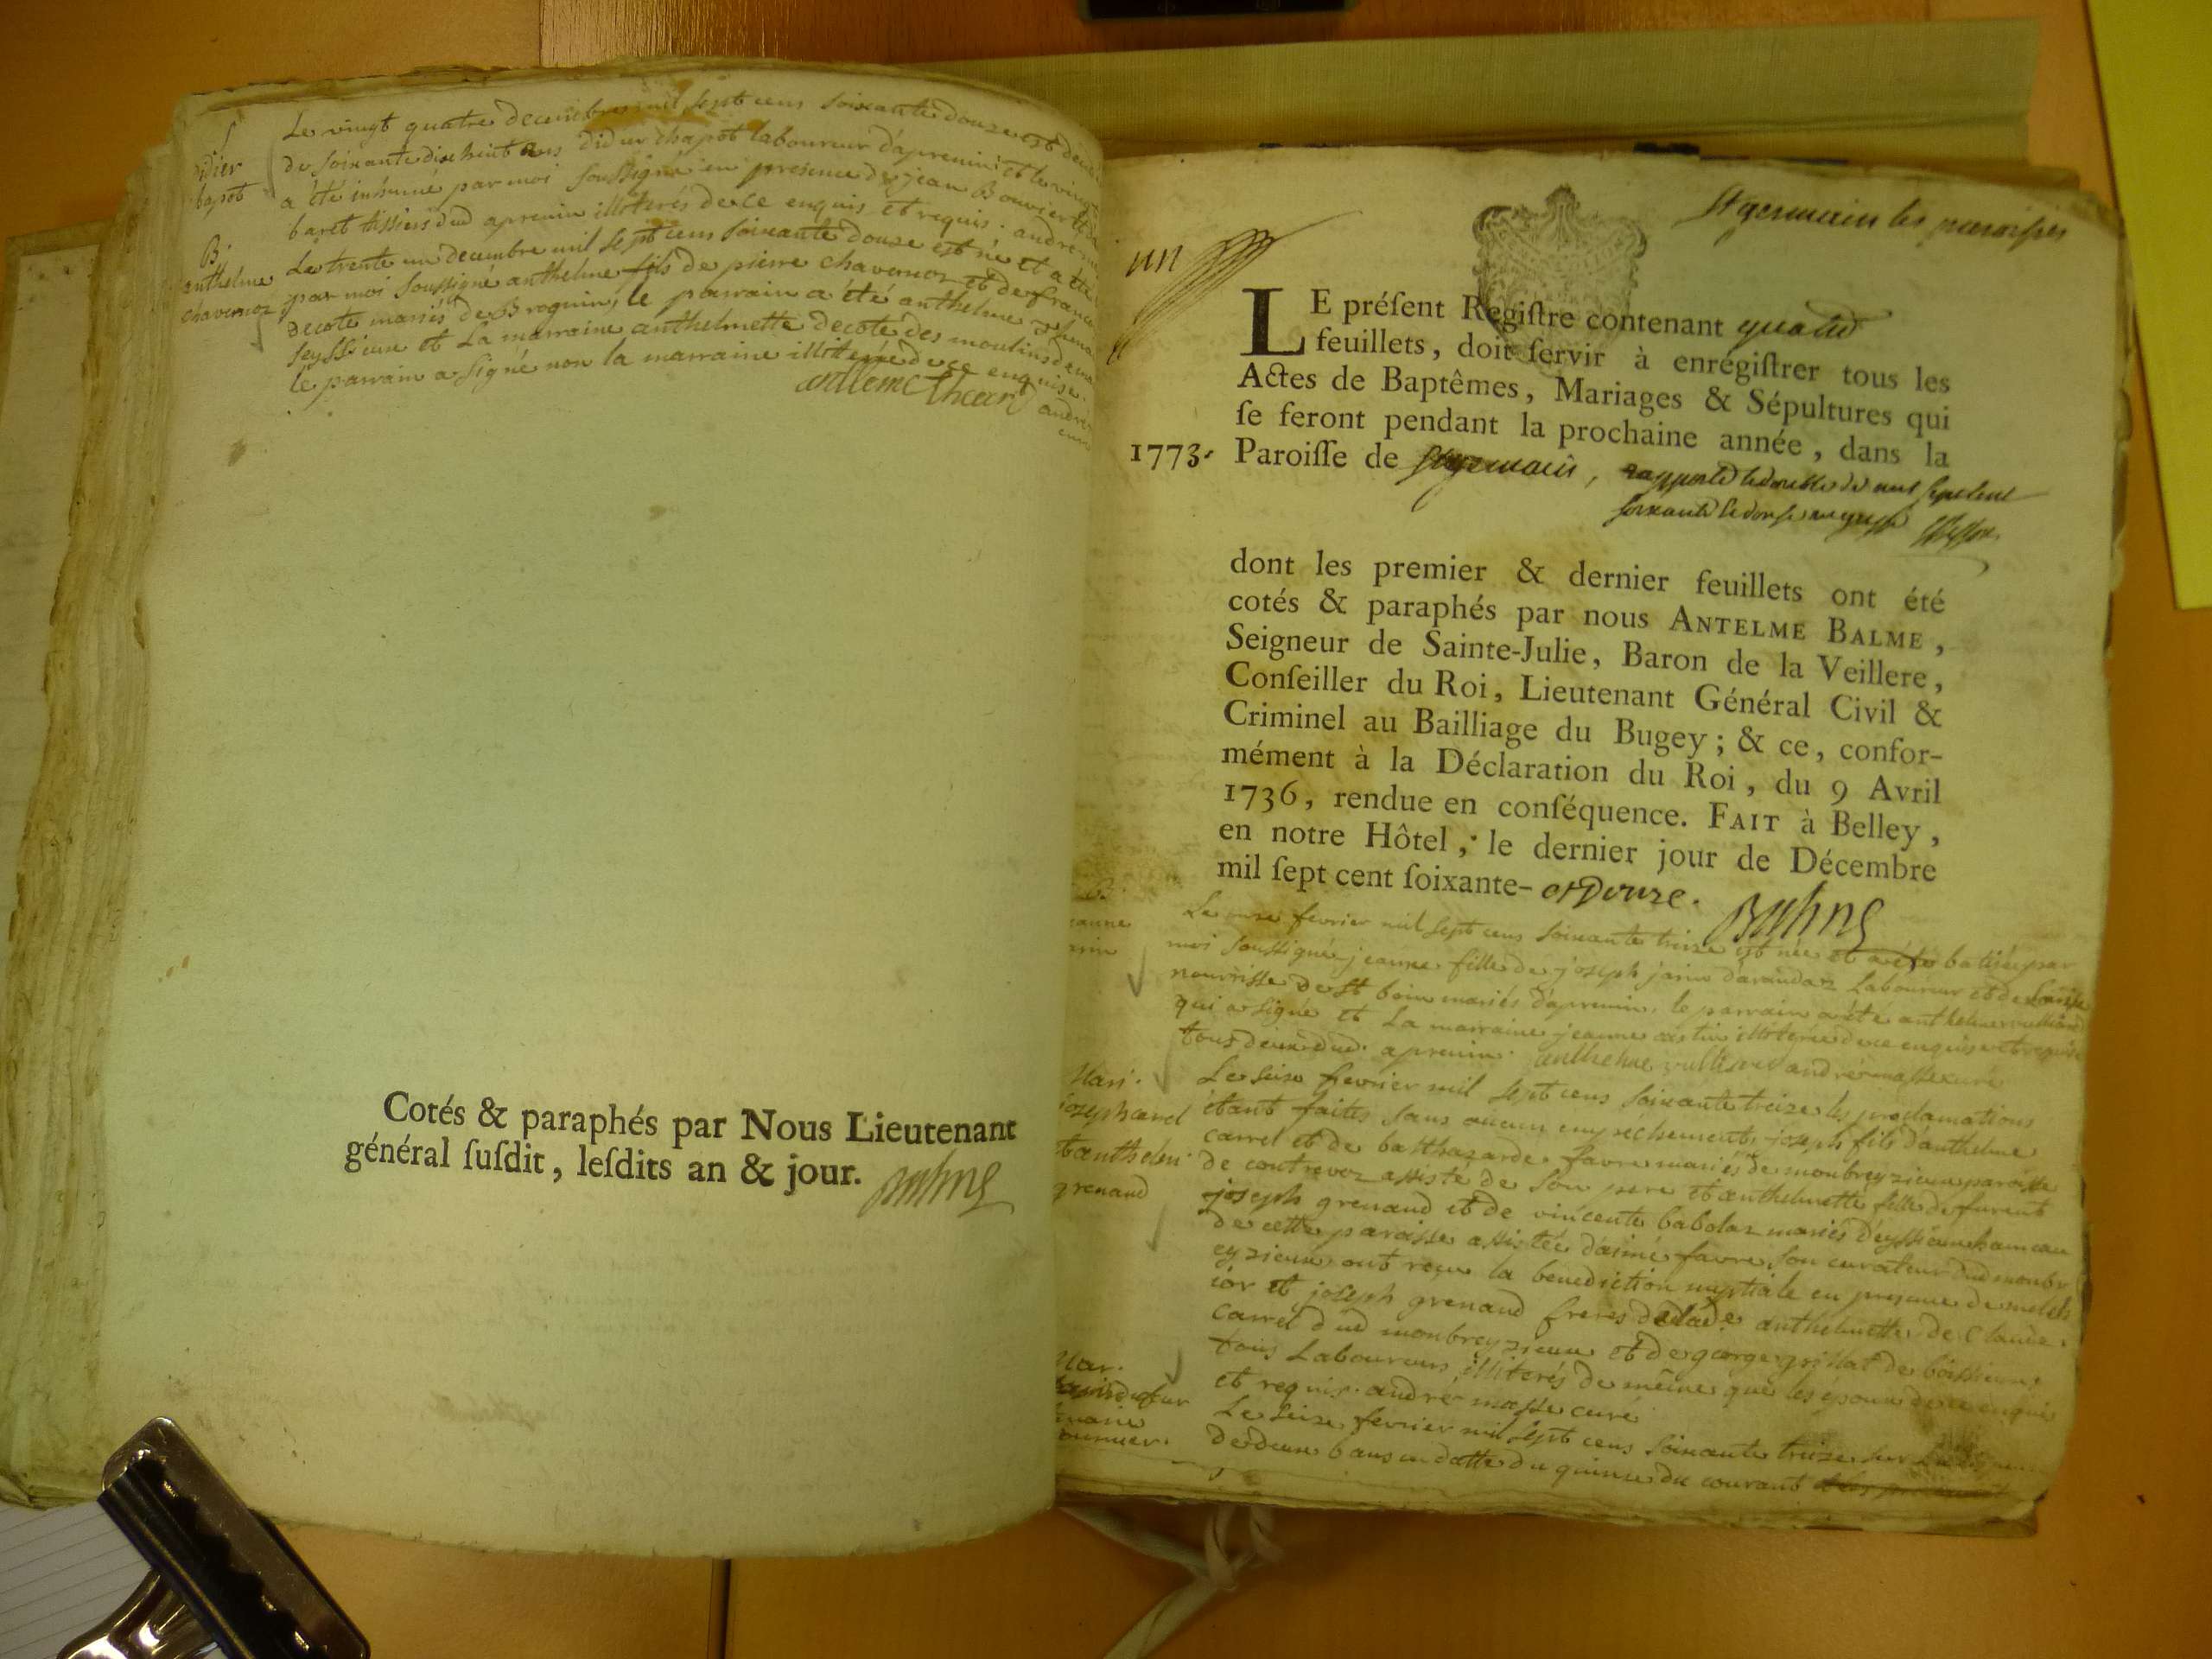 S
didier
chapot
Le vingt quatre decembre mil sept cens soixante douze est décédé
de soixante dix huit ans didier chapot laboureur d'apremin et le vingt
a été inhumé par moi soussigné en presence de jean Bouvier et
baret tissiers dud apremin illiterés de ce enquis et requis. andré
B.
anthelme
chavornoz
Le trente un decembre mil sept cens soixante douze est né et a été
par moi soussigné anthelme fils de pierre chavornoz et de francoise
decote mariés de Brognin, le parrain a été anthelme
seyssieux et La marraine anthelmette decote des moulins de
le parrain a signé non la marraine illiterée de ce enquise.
andré
curé
Cotés & paraphés par Nous Lieutenant
général ſuſdit, leſdits an & jour.
Balme
St germain les paroisses
un
LE préſent Regiſtre contenant quatre
feuillets, doit ſervir à enrégiſtrer tous les
Actes de Baptêmes, Mariages & Sépultures qui
ſe feront pendant la prochaine année, dans la
1773. Paroiſſe de St germain, rapporté le double de mil sept cent
soixante et douze au greffe
dont les premier & dernier feuillets ont été
cotés & paraphés par nous ANTELME BALME,
Seigneur de Sainte-Julie, Baron de la Veillere,
Conſeiller du Roi, Lieutenant Général Civil &
Criminel au Bailliage du Bugey; & ce, confor-
mément à la Déclaration du Roi, du 9 Avril
1736, rendue en conſéquence. FAIT à Belley,
en notre Hôtel, le dernier jour de Décembre
mil ſept cent ſoixante- et Douze.
Balme
B.
jeanne
Le onze fevrier mil sept cens soixante treize est née et a été batisée par
moi soussigné jeanne fille de joseph janin d'arandaz Laboureur et de Louise
nourrisse de St boin mariés d'apremin. le parrain a été anthelme vulliod
qui a signé et La marraine jeanne illiterée de ce enquise et requise
tous deux dud. apremin. anthelme vulliod andré masse curé
Mari.
joseph carrel
et anthelm.
grenaud
Le seize fevrier mil sept cens soixante treize les proclamations
étant faites sans aucun empechement, joseph fils d'anthelme
carrel et de balthazarde favre mariés de monbreyzieux paroisse
de contrevoz assisté de son pere et anthelmette fille de furent
joseph grenaud et de vincente babolaz mariés d'eyssieux hameau
de cette paroisse assistée d'aimé favre son curateur dud monbr
eyzieux ont reçu la benediction nuptiale en presence de melch
ior et joseph grenaud freres de lade anthelmette, de Claude
Carrel dud monbreyzieux et de george grillat de boissieux
tous Laboureurs illiterés de même que les époux de ce enquis
et requis. andré masse curé
Mar.
dufour
marie
Le seize fevrier mil sept cens soixante treize sur
de deux bans en datte du quinze du courant